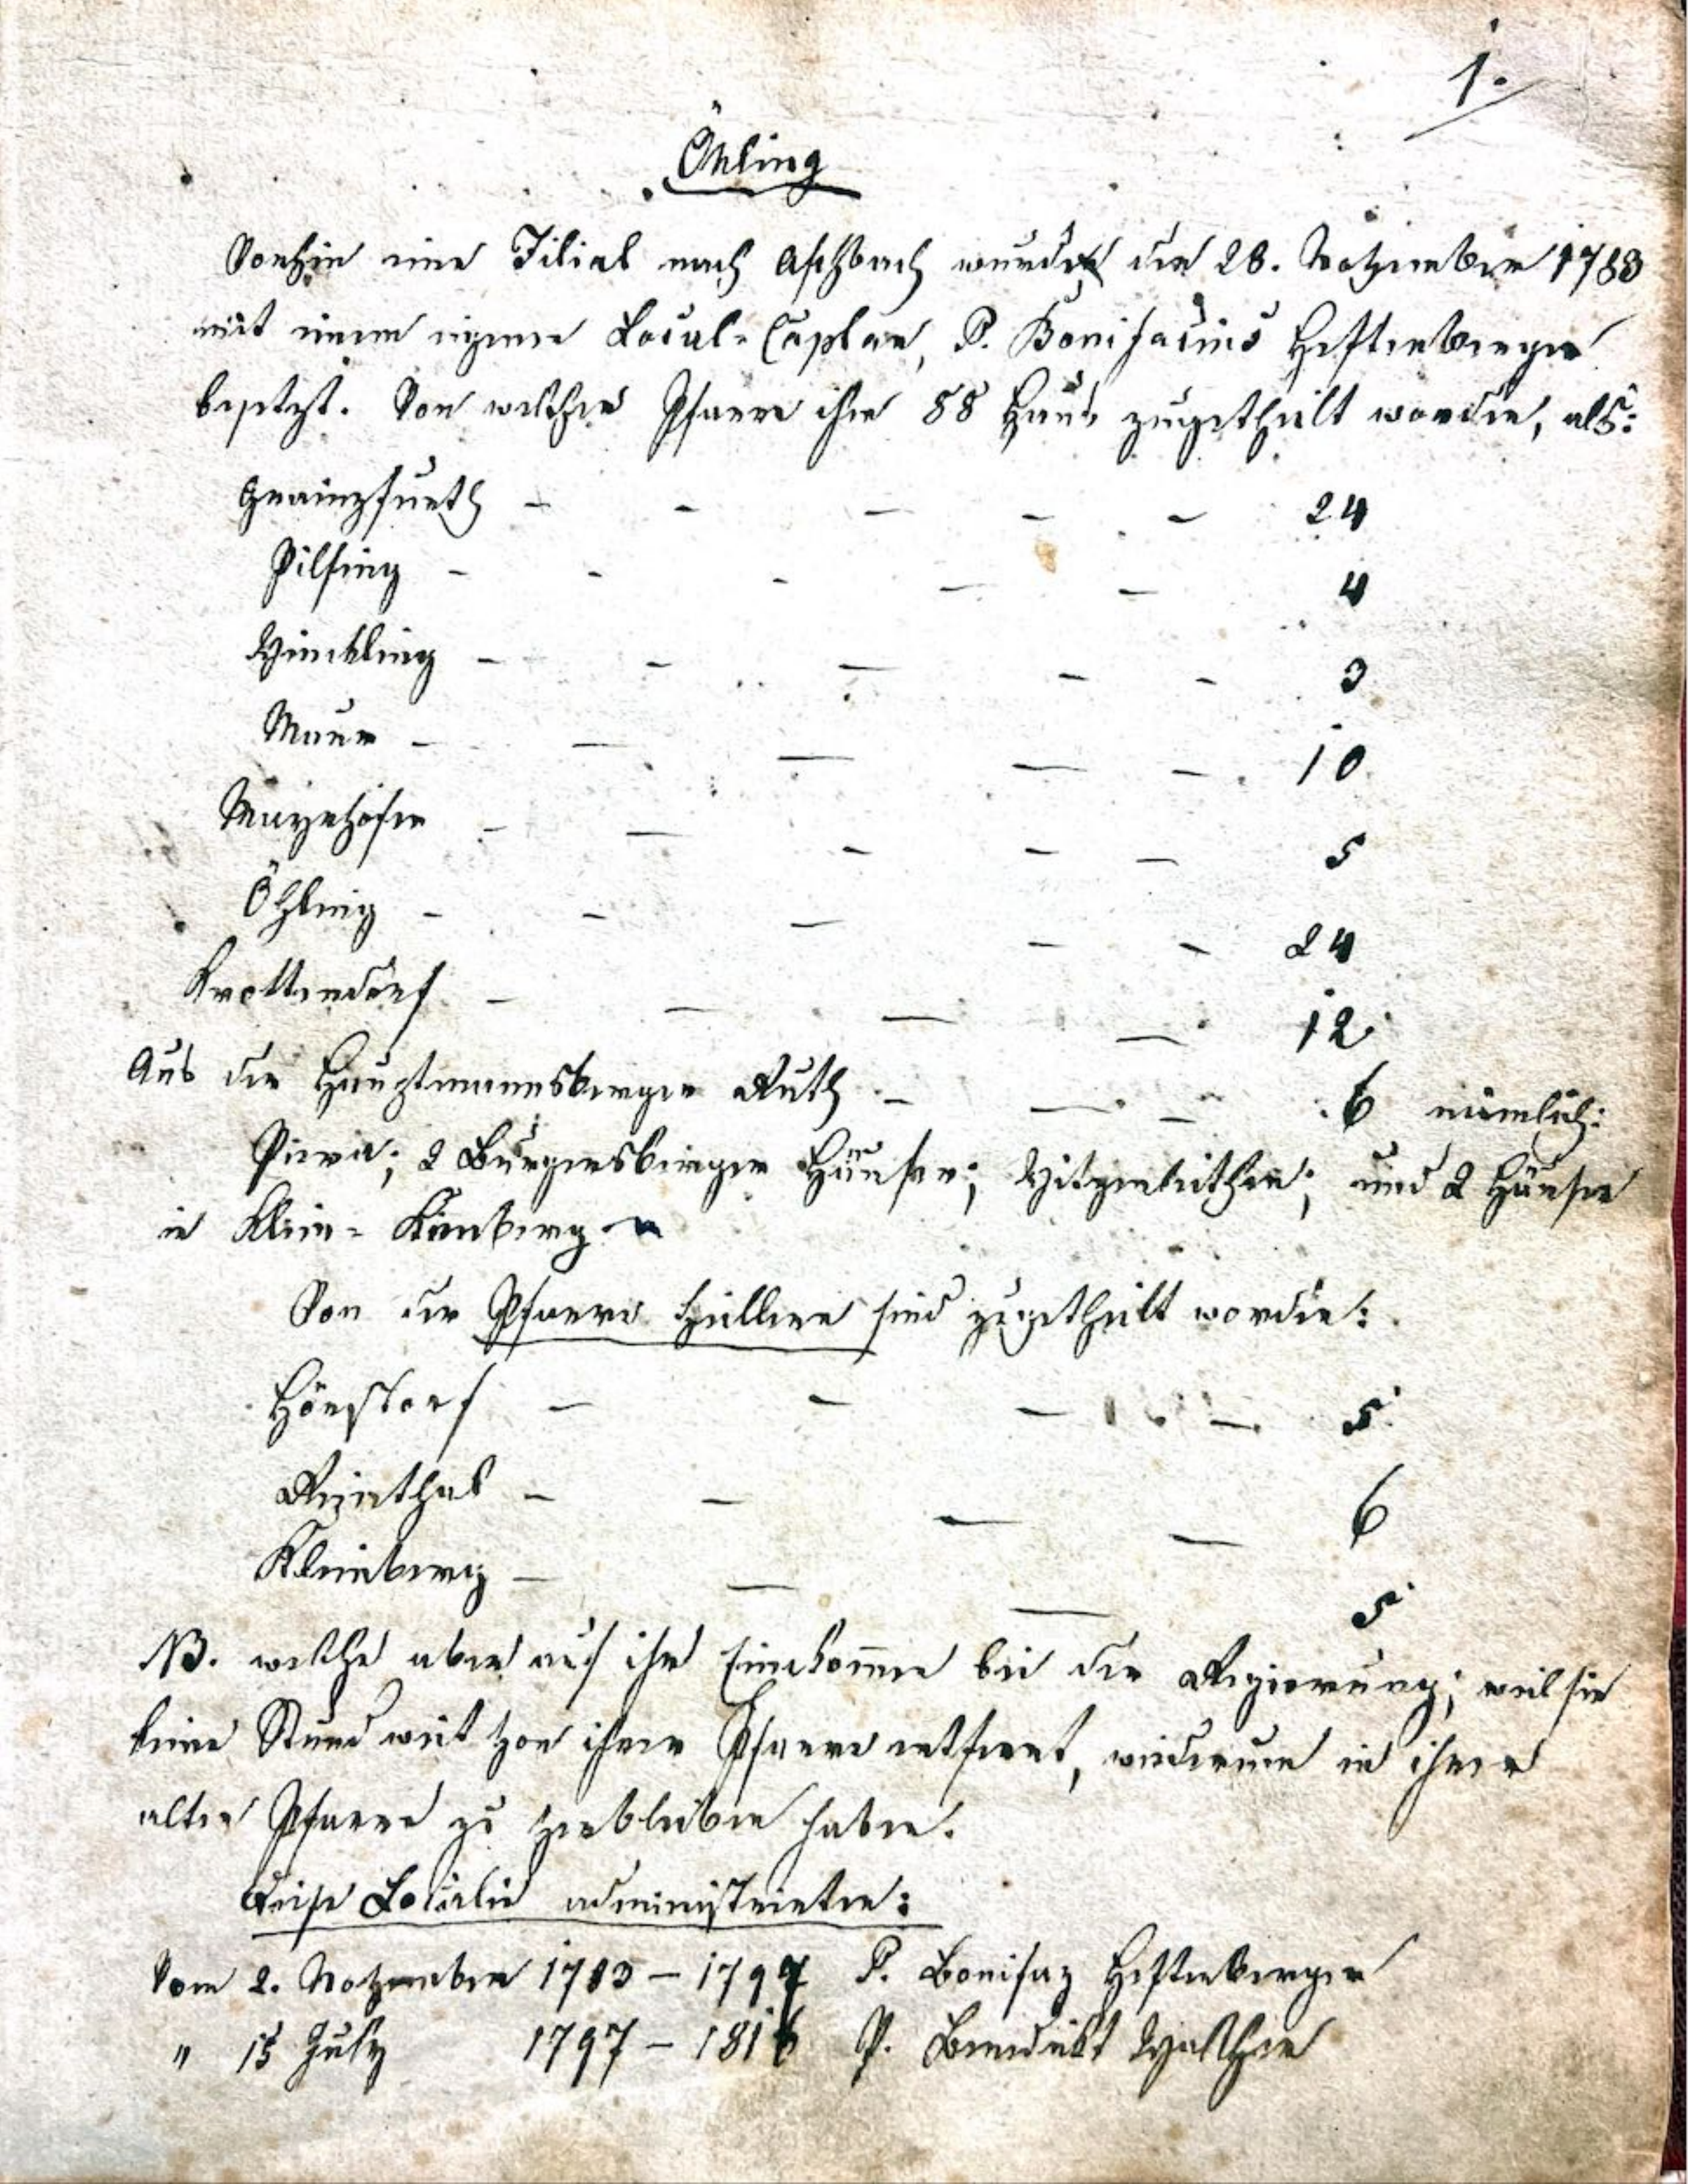 1.
Öhling
Vorhin eine Filial nach Aschbach wurde den 28. November 1783
mit einem eigenen Local-Caplan, P. Bonifacius Heftenberger
besetzt. Von welcher Pfarre ihr 88 Häus zugetheilt worden, als:
Grainzfurth - - - - - 24
Pilsing - - - - - 4
Winkling - - - - - 3
Mauer - - - - - 10
Mayrhofen - - - - - 5
Öhling - - - - - 24
Krottendorf - - - - 12
Aus der Hauptmannsberger Ruth - - - 6 nämlich:
2 Burgersberger Häuser; und 2 Häuser
in Klein-
Von der Pfarre Zeillern sind zugetheilt worden:
Hörstorf - - - - 5
Reinthal - - - - 6
Kleinberg - - - 5
NB. welche aber auf ihr Einkommen bei der Regierung; weil sie
keine Stund weit von ihrer Pfarre entfernt, wiederum in ihrer
alten Pfarre zu verbleiben haben.
Diese Localie administrirten:
Vom 2. November 1783 – 1797 P. Bonifaz Heftenberger
" 15 July 1797 – 1816 P. Benedikt